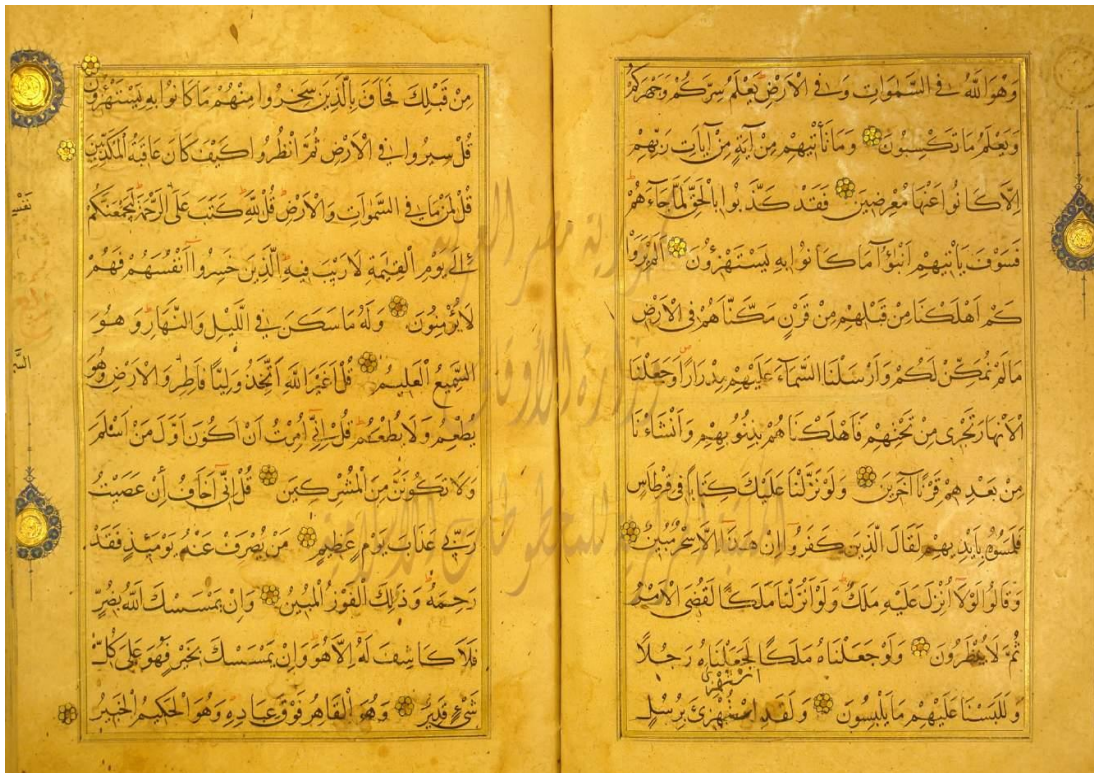 وَهُوَ اللّٰهُ فِي السَّمٰوَاتِ وَفِي الْاَرْضِ يَعْلَمُ سِرَّكُمْ وَجَهْرَكُمْ
وَيَعْلَمُ مَا تَكْسِبُونَ وَمَا تَأْتِيهِمْ مِنْ آيَةٍ مِنْ آيَاتِ رَبِّهِمْ
اِلَّا كَانُوا عَنْهَا مُعْرِضِينَ فَقَدْ كَذَّبُوا بِالْحَقِّ لَمَّا جَاءَهُمْ
فَسَوْفَ يَأْتِيهِمْ اَنْبٰؤُا مَا كَانُوا بِهِ يَسْتَهْزِؤُنَ اَلَمْ يَرَوْا
كَمْ اَهْلَكْنَا مِنْ قَبْلِهِمْ مِنْ قَرْنٍ مَكَّنَّاهُمْ فِي الْاَرْضِ
مَا لَمْ نُمَكِّنْ لَكُمْ وَاَرْسَلْنَا السَّمَاءَ عَلَيْهِمْ مِدْرَارًا وَجَعَلْنَا
الْاَنْهَارَ تَجْرِي مِنْ تَحْتِهِمْ فَاَهْلَكْنَاهُمْ بِذُنُوبِهِمْ وَاَنْشَاْنَا
مِنْ بَعْدِهِمْ قَرْنًا آخَرِينَ وَلَوْ نَزَّلْنَا عَلَيْكَ كِتَابًا فِي قِرْطَاسٍ
فَلَمَسُوهُ بِاَيْدِيهِمْ لَقَالَ الَّذِينَ كَفَرُوا اِنْ هٰذَا اِلَّا سِحْرٌ مُبِينٌ
وَقَالُوا لَوْلَا اُنْزِلَ عَلَيْهِ مَلَكٌ وَلَوْ اَنْزَلْنَا مَلَكًا لَقُضِيَ الْاَمْرُ
ثُمَّ لَا يُنْظَرُونَ وَلَوْ جَعَلْنَاهُ مَلَكًا لَجَعَلْنَاهُ رَجُلًا
وَلَلَبَسْنَا عَلَيْهِمْ مَا يَلْبِسُونَ وَلَقَدِ اسْتُهْزِئَ بِرُسُلٍ
مِنْ قَبْلِكَ فَحَاقَ بِالَّذِينَ سَخِرُوا مِنْهُمْ مَا كَانُوا بِهِ يَسْتَهْزِؤُنَ
قُلْ سِيرُوا فِي الْاَرْضِ ثُمَّ انْظُرُوا كَيْفَ كَانَ عَاقِبَةُ الْمُكَذِّبِينَ
قُلْ لِمَنْ مَا فِي السَّمٰوَاتِ وَالْاَرْضِ قُلْ لِلّٰهِ كَتَبَ عَلٰى الرَّحْمَةَ لَيَجْمَعَنَّكُمْ
اِلٰى يَوْمِ الْقِيٰمَةِ لَا رَيْبَ فِيهِ الَّذِينَ خَسِرُوا اَنْفُسَهُمْ فَهُمْ
لَا يُؤْمِنُونَ وَلَهُ مَا سَكَنَ فِي الَّيْلِ وَالنَّهَارِ وَهُوَ
السَّمِيعُ الْعَلِيمُ قُلْ اَغَيْرَ اللّٰهِ اَتَّخِذُ وَلِيًّا فَاطِرِ وَالْاَرْضِ وَهُوَ
يُطْعِمُ وَلَا يُطْعَمُ قُلْ اِنِّي اُمِرْتُ اَنْ اَكُونَ اَوَّلَ مَنْ اَسْلَمَ
وَلَا تَكُونَنَّ مِنَ الْمُشْرِكِينَ قُلْ اِنِّي اَخَافُ اِنْ عَصَيْتُ
رَبِّي عَذَابَ يَوْمٍ عَظِيمٍ مَنْ يُصْرَفْ عَنْهُ يَوْمَئِذٍ فَقَدْ
رَحِمَهُ وَذٰلِكَ الْفَوْزُ الْمُبِينُ وَاِنْ يَمْسَسْكَ اللّٰهُ بِضُرٍّ
فَلَا كَاشِفَ لَهُ اِلَّا هُوَ وَاِنْ يَمْسَسْكَ بِخَيْرٍ فَهُوَ عَلٰى كُلِّ
شَيْءٍ قَدِيرٌ وَهُوَ الْقَاهِرُ فَوْقَ عِبَادِهِ وَهُوَ الْحَكِيمُ الْخَبِيرُ